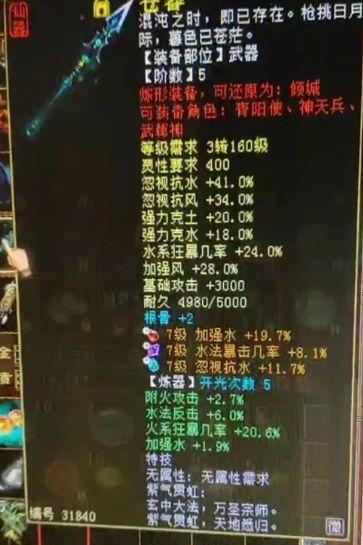 仙器
苍暮
混沌之时，即已存在。枪挑日月
际，暮色已苍茫。
【装备部位】武器
【阶数】5
烁形装备，可还原为：倾城
可装备角色：青阳使、神天兵、
武神
等级需求 3转160级
灵性要求 400
忽视抗水 +41.0%
忽视抗风 +34.0%
强力克土 +20.0%
强力克水 +18.0%
水系狂暴几率 +24.0%
加强风 +28.0%
基础攻击 +3000
耐久 4980/5000
根骨 +2
7级 加强水 +19.7%
7级 水法暴击几率 +8.1%
7级 忽视抗水 +11.7%
【炼器】开光次数 5
附火攻击 +2.7%
水法反击 +6.0%
火系狂暴几率 +20.6%
加强水 +1.9%
特技
无属性：无属性需求
紫气贯虹：
玄中大法，万圣宗师。
紫气贯虹，天地悉归。
编号 31840
微